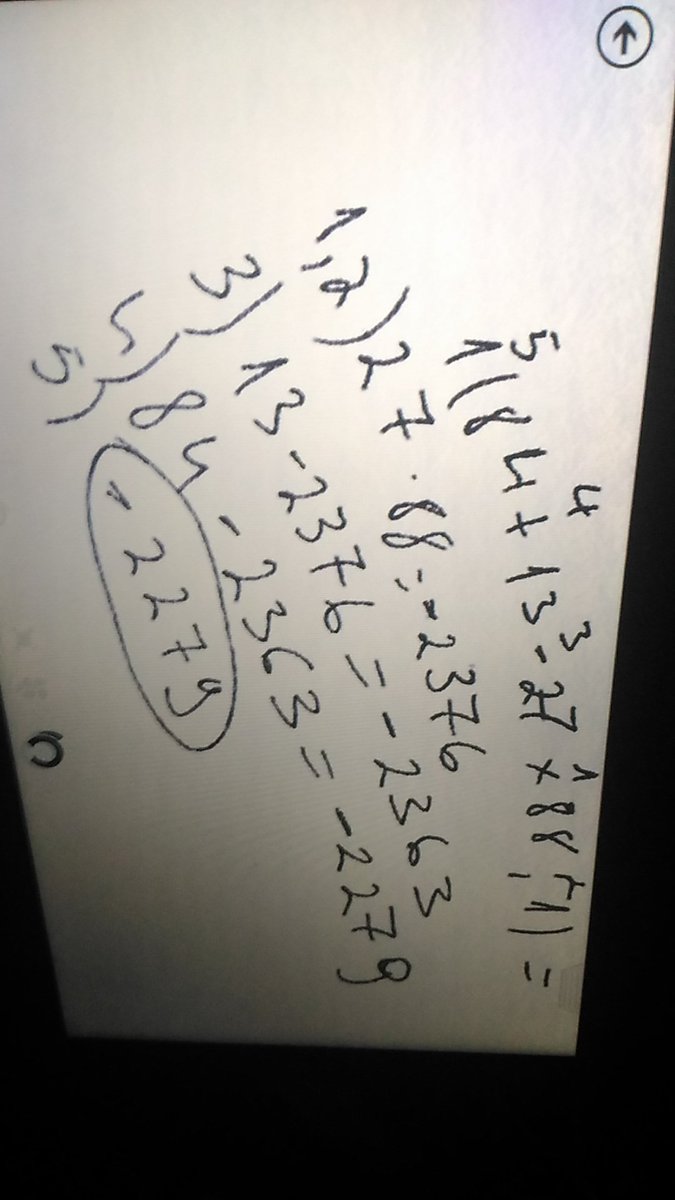 1(84+13-27×88:-1)=
1,2)27·88:-2376
3)13-2376=-2363
4)84-2363=-2279
5)-2279